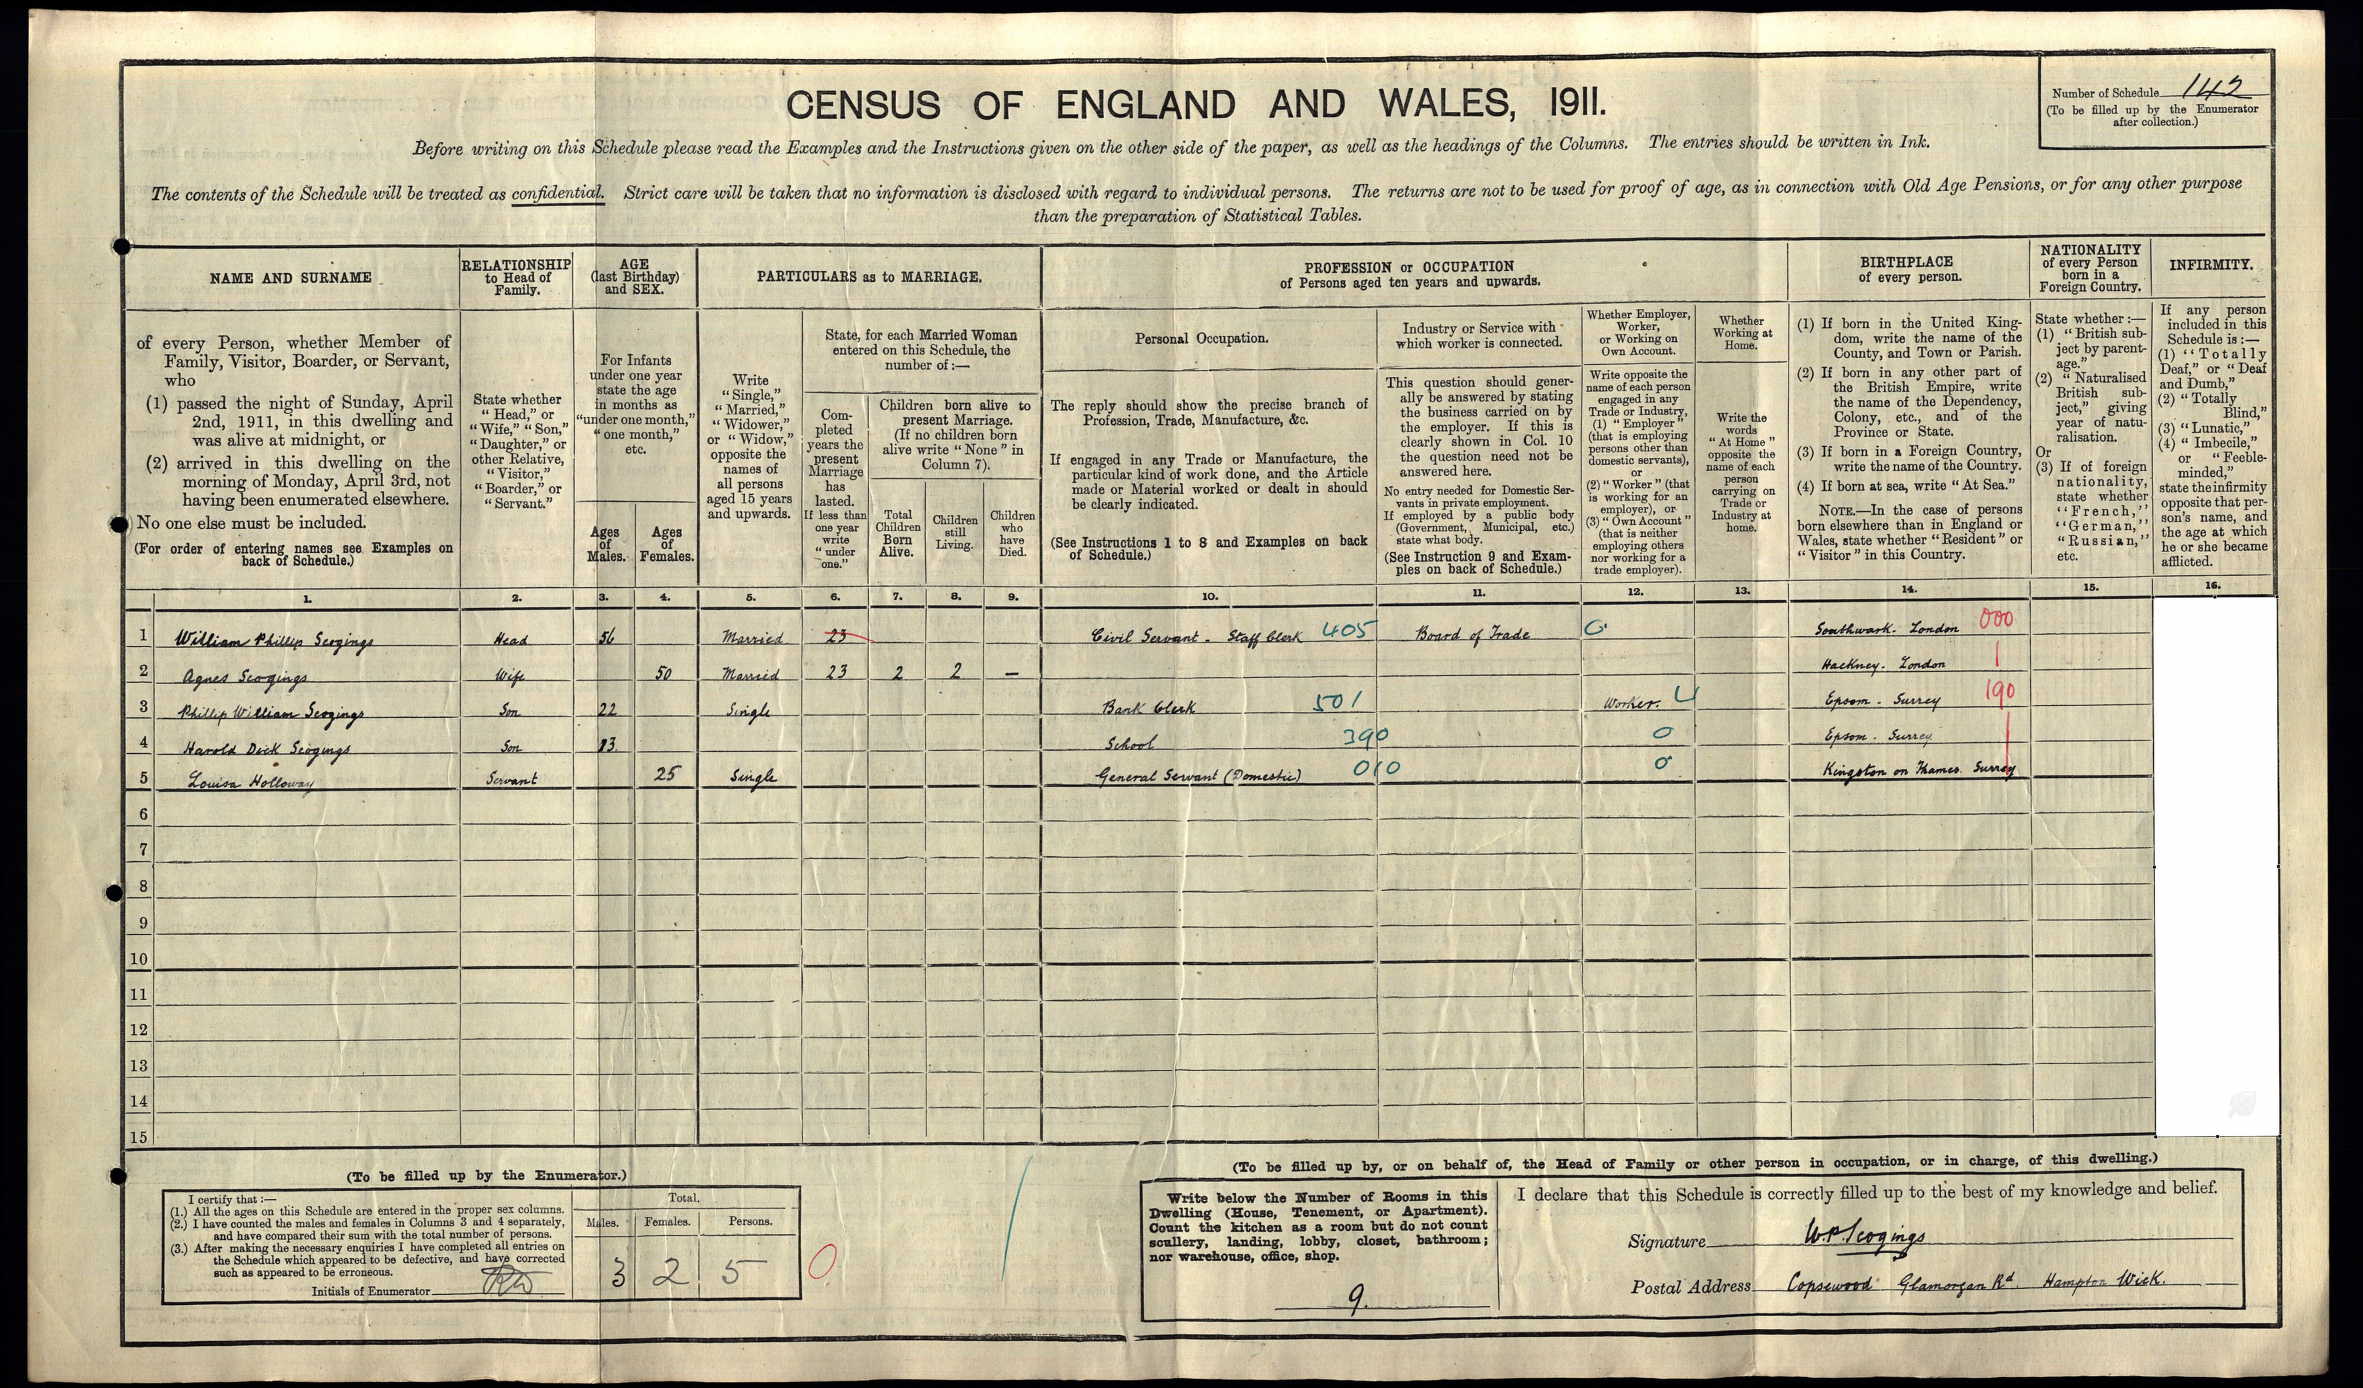 CENSUS OF ENGLAND AND WALES, 1911.
Number of Schedule 142
(To be filled up by the Enumerator
after collection.)
Before writing on this Schedule please read the Examples and the Instructions given on the other side of the paper, as well as the headings of the Columns. The entries should be written in Ink.
The contents of the Schedule will be treated as confidential. Strict care will be taken that no information is disclosed with regard to individual persons. The returns are not to be used for proof of age, as in connection with Old Age Pensions, or for any other purpose
than the preparation of Statistical Tables.
NAME AND SURNAME
of every Person, whether Member of
Family, Visitor, Boarder, or Servant,
who
(1) passed the night of Sunday, April
2nd, 1911, in this dwelling and
was alive at midnight, or
(2) arrived in this dwelling on the
morning of Monday, April 3rd, not
having been enumerated elsewhere.
No one else must be included.
(For order of entering names see Examples on
back of Schedule.)
RELATIONSHIP
to Head of
Family.
State whether
"Head," or
"Wife," "Son,"
"Daughter," or
other Relative,
"Visitor,"
"Boarder," or
"Servant."
AGE
(last Birthday)
and SEX.
For Infants
under one year
state the age
in months as
"under one month,"
"one month,"
etc.
Ages
of
Males.
Ages
of
Females.
PARTICULARS as to MARRIAGE.
Write
"Single,"
"Married,"
"Widower,"
or "Widow,"
opposite the
names of
all persons
aged 15 years
and upwards.
State, for each Married Woman
entered on this Schedule, the
number of:—
Com-
pleted
years the
present
Marriage
has
lasted.
If less than
one year
write
"under
one."
Children born alive to
present Marriage.
(If no children born
alive write "None" in
Column 7).
Total
Children
Born
Alive.
Children
still
Living.
Children
who
have
Died.
PROFESSION or OCCUPATION
of Persons aged ten years and upwards.
Personal Occupation.
The reply should show the precise branch of
Profession, Trade, Manufacture, &c.
If engaged in any Trade or Manufacture, the
particular kind of work done, and the Article
made or Material worked or dealt in should
be clearly indicated.
(See Instructions 1 to 8 and Examples on back
of Schedule.)
Industry or Service with
which worker is connected.
This question should gener-
ally be answered by stating
the business carried on by
the employer. If this is
clearly shown in Col. 10
the question need not be
answered here.
No entry needed for Domestic Ser-
vants in private employment.
If employed by a public body
(Government, Municipal, etc.)
state what body.
(See Instruction 9 and Exam-
ples on back of Schedule.)
Whether Employer,
Worker,
or Working on
Own Account.
Write opposite the
name of each person
engaged in any
Trade or Industry,
(1) "Employer"
(that is employing
persons other than
domestic servants),
or
(2) "Worker" (that
is working for an
employer), or
(3) "Own Account"
(that is neither
employing others
nor working for a
trade employer).
Whether
Working at
Home.
Write the
words
"At Home"
opposite the
name of each
person
carrying on
Trade or
Industry at
home.
BIRTHPLACE
of every person.
(1) If born in the United King-
dom, write the name of the
County, and Town or Parish.
(2) If born in any other part of
the British Empire, write
the name of the Dependency,
Colony, etc., and of the
Province or State.
(3) If born in a Foreign Country,
write the name of the Country.
(4) If born at sea, write "At Sea."
NOTE.—In the case of persons
born elsewhere than in England or
Wales, state whether "Resident" or
"Visitor" in this Country.
NATIONALITY
of every Person
born in a
Foreign Country.
State whether:—
(1) "British sub-
ject by parent-
age."
(2) "Naturalised
British sub-
ject," giving
year of natu-
ralisation.
Or
(3) If of foreign
nationality,
state whether
"French,"
"German,"
"Russian,"
etc.
INFIRMITY.
If any person
included in this
Schedule is:—
(1) "Totally
Deaf," or "Deaf
and Dumb,"
(2) "Totally
Blind,"
(3) "Lunatic,"
(4) "Imbecile,"
or "Feeble-
minded,"
state the infirmity
opposite that per-
son's name, and
the age at which
he or she became
afflicted.
1. 2. 3. 4. 5. 6. 7. 8. 9. 10. 11. 12. 13. 14. 15. 16.
1 William Phillip Scogings Head 56 Married 23 Civil Servant - Staff Clerk 405 Board of Trade 0 Southwark. London 000
2 Agnes Scogings Wife 50 Married 23 2 2 — Hackney. London
3 Phillip William Scogings Son 22 Single Bank Clerk 501 Worker. 4 Epsom. Surrey 190
4 Harold Dick Scogings Son 13 School 390 0 Epsom. Surrey
5 Louisa Holloway Servant 25 Single General Servant (Domestic) 010 0 Kingston on Thames. Surrey
6
7
8
9
10
11
12
13
14
15
(To be filled up by the Enumerator.)
I certify that:—
(1.) All the ages on this Schedule are entered in the proper sex columns.
(2.) I have counted the males and females in Columns 3 and 4 separately,
and have compared their sum with the total number of persons.
(3.) After making the necessary enquiries I have completed all entries on
the Schedule which appeared to be defective, and have corrected
such as appeared to be erroneous.
Initials of Enumerator
Total.
Males. Females. Persons.
3 2 5 0
(To be filled up by, or on behalf of, the Head of Family or other person in occupation, or in charge, of this dwelling.)
Write below the Number of Rooms in this
Dwelling (House, Tenement, or Apartment).
Count the kitchen as a room but do not count
scullery, landing, lobby, closet, bathroom;
nor warehouse, office, shop.
9.
I declare that this Schedule is correctly filled up to the best of my knowledge and belief.
Signature W. P. Scogings
Postal Address Copsewood Glamorgan Rd. Hampton Wick.